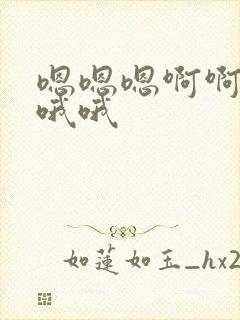 嗯嗯嗯啊啊
哦哦
如莲如玉_hx2